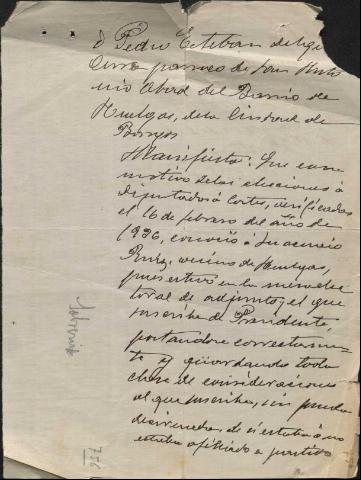 D Pedro Esteban
Cura parroco de San Anto
nio Abad del Barrio de
Huelgas, de la Ciudad de
Burgos
Manifiesta: Que con
motivo de las elecciones á
Diputados á Cortes, verificadas
el 16 de febrero del año de
1936, conoció á Inocencio
Ruiz, vecino de Huelgas,
presentes en la mesa elec
toral de adjunto, el que
suscribe de Presidente,
portandose correctamen
te y guardando toda
clase de consideraciones
al que suscribe, sin poder
discernir de si estaba ó no
estaba afiliado a partido
756